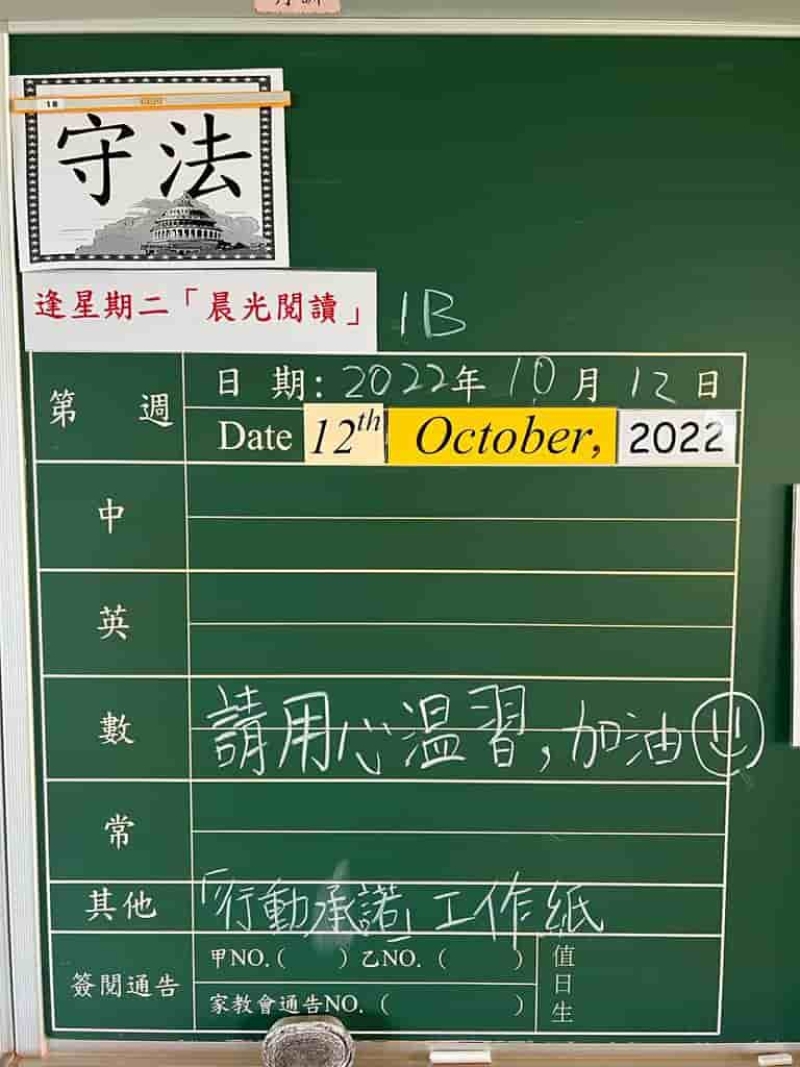 18
守法
逢星期二「晨光閱讀」
1B
第 週
日 期：2022年 10月 12日
Date 12th October, 2022
中
英
數
請用心溫習，加油
常
其他
「行動承諾」工作紙
簽閱通告
甲NO.( ) 乙NO. ( )
家教會通告NO. ( )
值日生